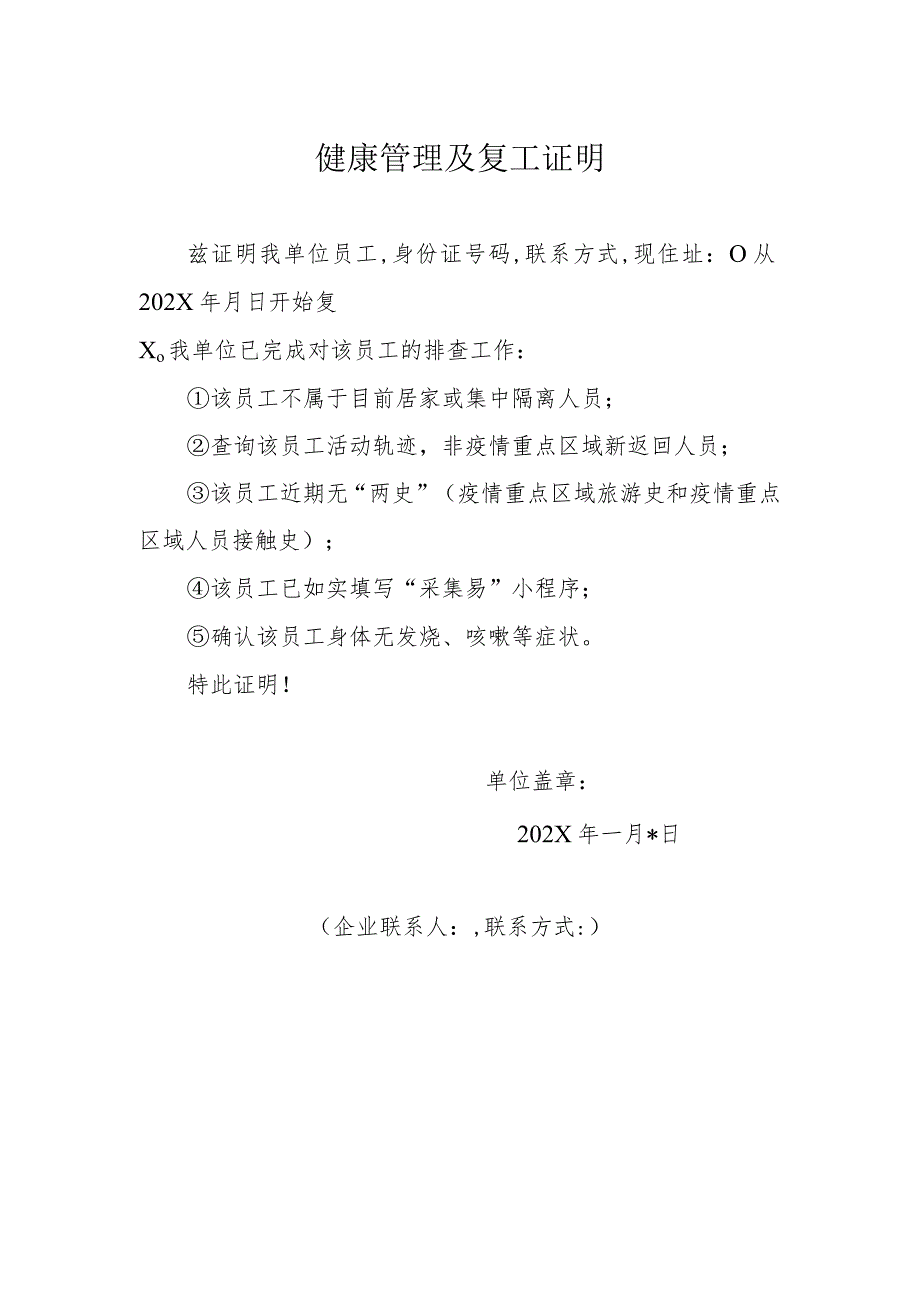 健康管理及复工证明
兹证明我单位员工,身份证号码,联系方式,现住址：O 从
202X 年月日开始复
Xo我单位已完成对该员工的排查工作：
①该员工不属于目前居家或集中隔离人员；
②查询该员工活动轨迹，非疫情重点区域新返回人员；
③该员工近期无“两史”（疫情重点区域旅游史和疫情重点
区域人员接触史）；
④该员工已如实填写“采集易”小程序；
⑤确认该员工身体无发烧、咳嗽等症状。
特此证明！
单位盖章：
202X 年一月*日
（企业联系人：,联系方式:）